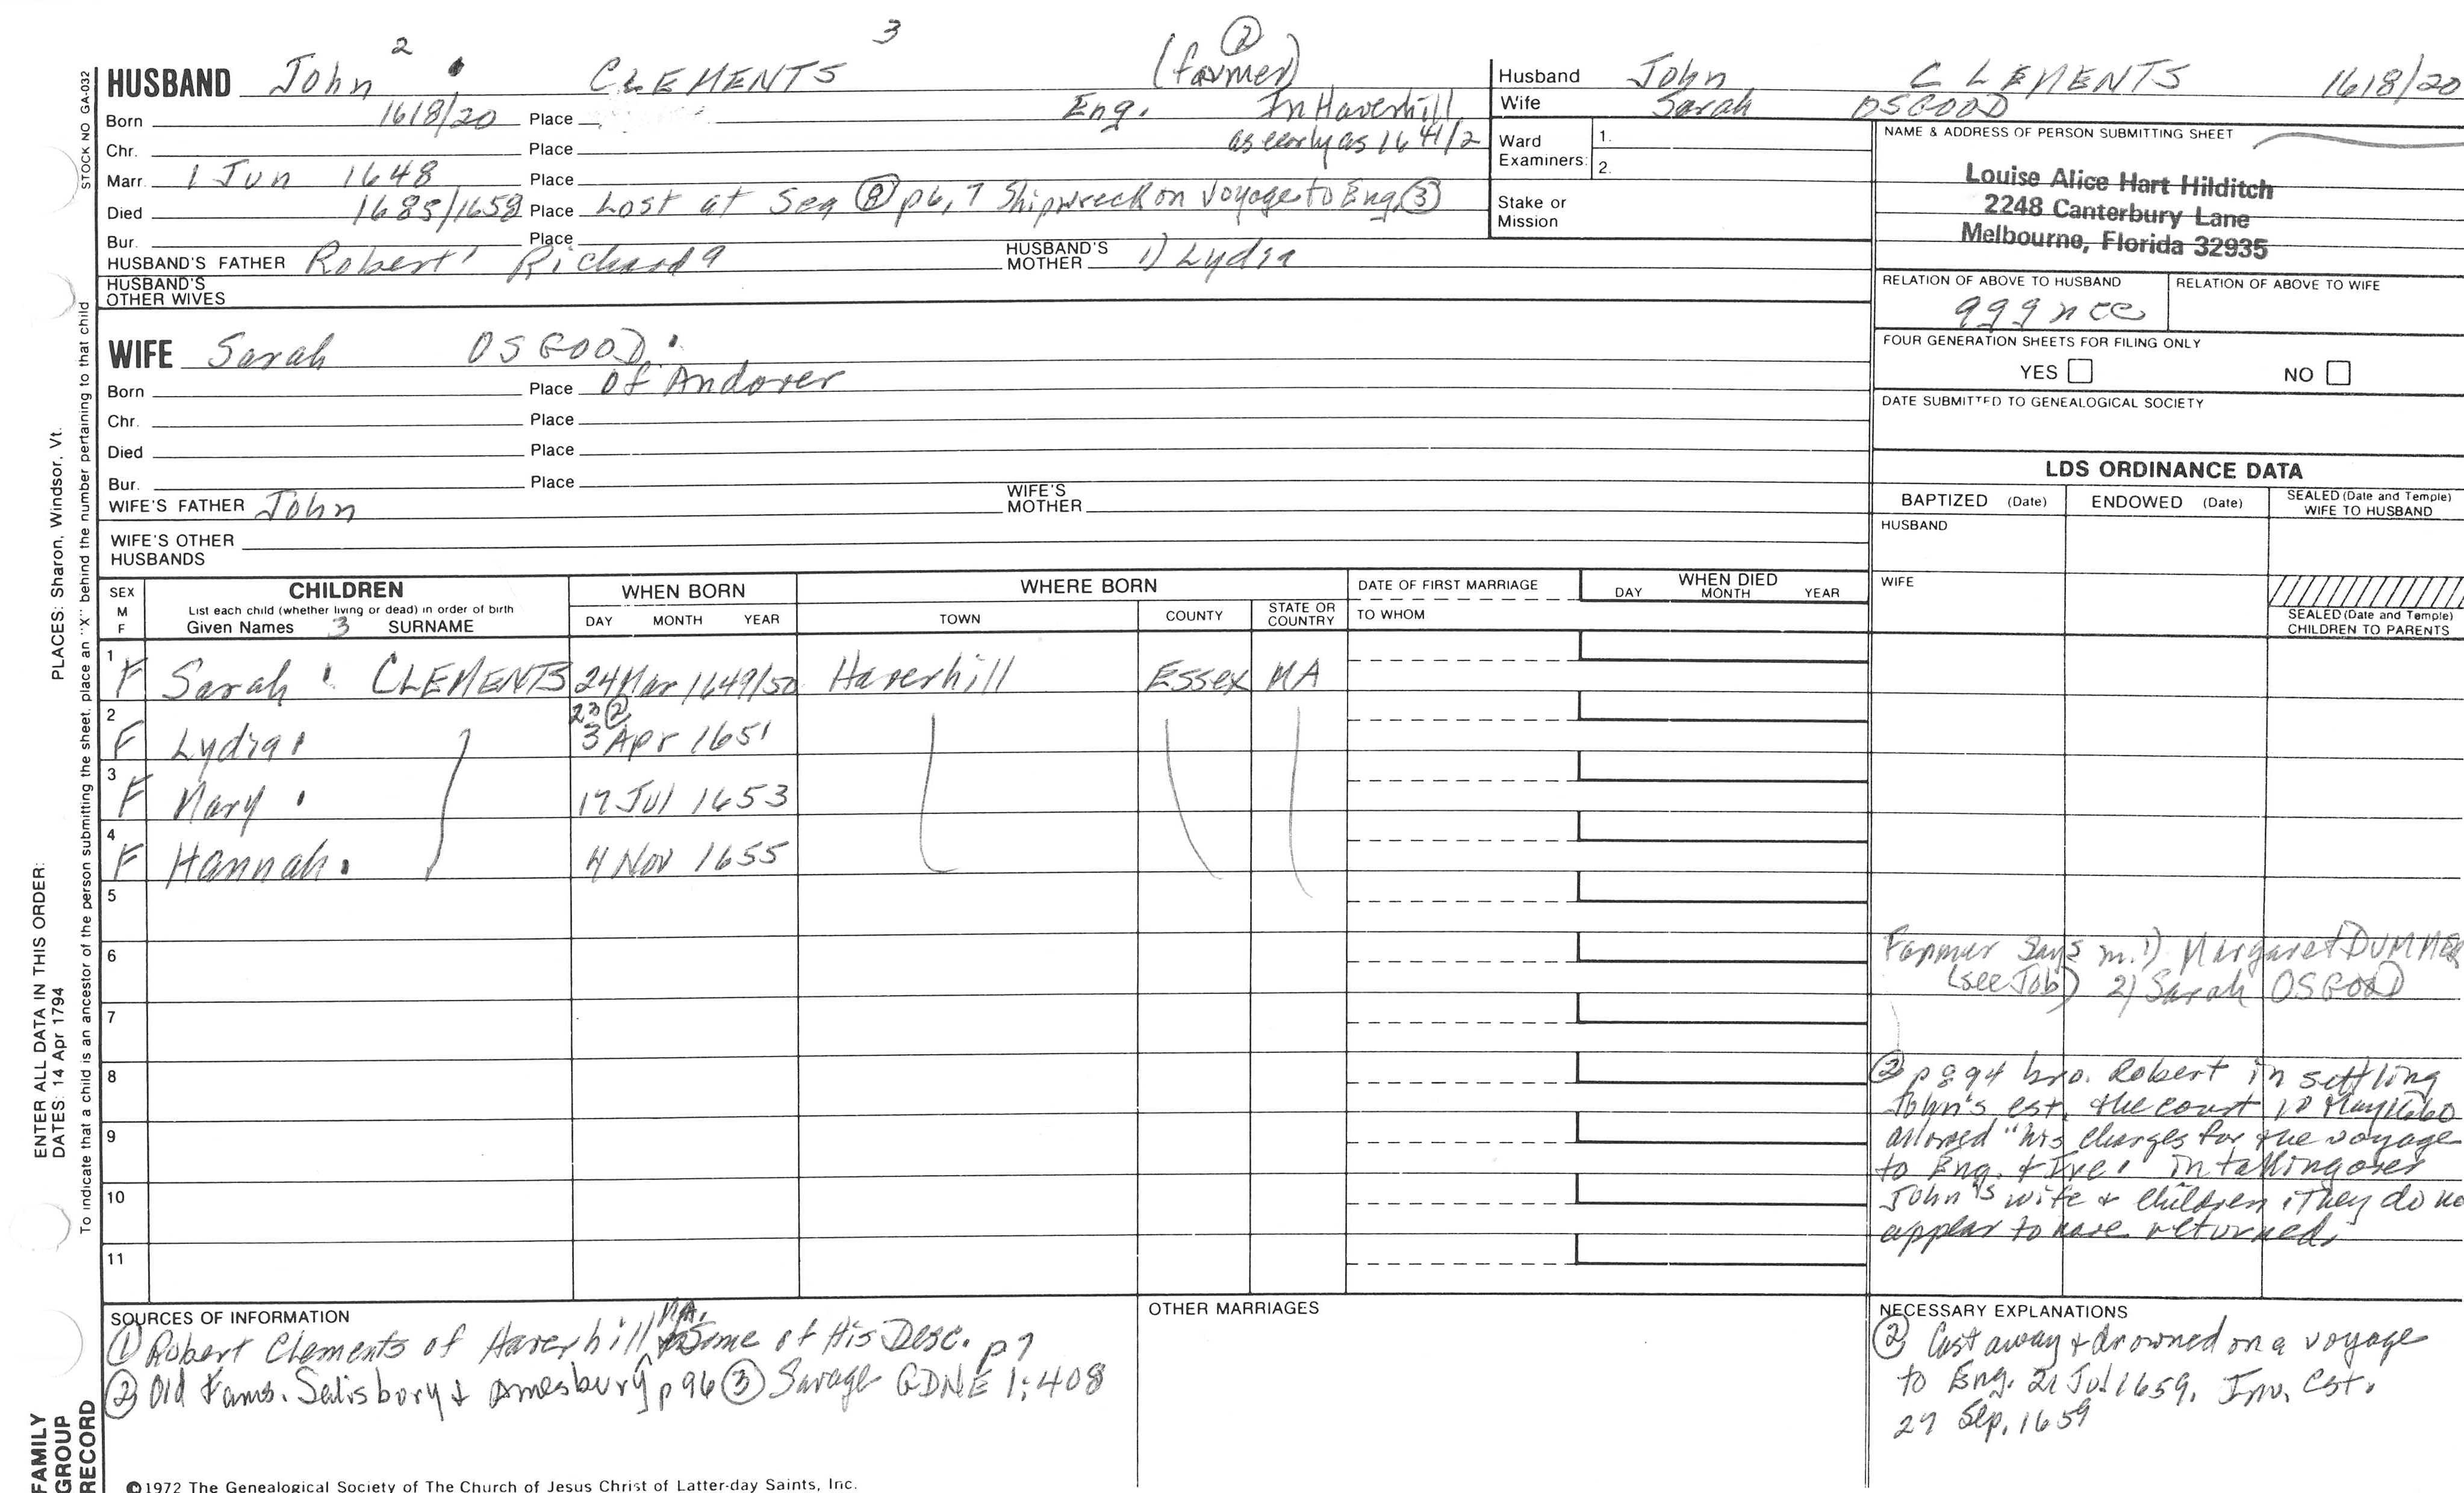 2 3 (2)
HUSBAND John CLEMENTS (farmer)
Born 1618/20 Place Eng. In Haverhill
Chr. Place as early as 1641/2
Marr. 1 Jun 1648 Place
Died 1685/1658 Place Lost at Sea (8) p6,7 Shipwreck on Voyage to Eng (3)
Bur. Place
HUSBAND'S FATHER Robert' Richard9 HUSBAND'S MOTHER 1) Lydia
HUSBAND'S OTHER WIVES
WIFE Sarah OSGOOD
Born Place of Andover
Chr. Place
Died Place
Bur. Place
WIFE'S FATHER John WIFE'S MOTHER
WIFE'S OTHER HUSBANDS
Husband John CLEMENTS 1618/20
Wife Sarah OSGOOD
Ward Examiners: 1.
2.
Stake or Mission
NAME & ADDRESS OF PERSON SUBMITTING SHEET
Louise Alice Hart Hilditch
2248 Canterbury Lane
Melbourne, Florida 32935
RELATION OF ABOVE TO HUSBAND RELATION OF ABOVE TO WIFE
FOUR GENERATION SHEETS FOR FILING ONLY
YES NO
DATE SUBMITTED TO GENEALOGICAL SOCIETY
LDS ORDINANCE DATA
BAPTIZED (Date) ENDOWED (Date) SEALED (Date and Temple) WIFE TO HUSBAND
HUSBAND
WIFE
SEALED (Date and Temple) CHILDREN TO PARENTS
SEX M F CHILDREN WHEN BORN WHERE BORN DATE OF FIRST MARRIAGE WHEN DIED
List each child (whether living or dead) in order of birth
Given Names 3 SURNAME DAY MONTH YEAR TOWN COUNTY STATE OR COUNTRY TO WHOM DAY MONTH YEAR
1 F Sarah CLEMENTS 24 Mar 1649/50 Haverhill Essex MA
23 (2)
2 F Lydia 3 Apr 1651
3 F Mary 17 Jul 1653
4 F Hannah 4 Nov 1655
5
6
7
8
9
10
11
Farmer says m. 1) Margaret DUMMER
(see Job) 2) Sarah OSGOOD
(2) p 894 bro. Robert in settling
John's est. the court 10 May 1660
allowed "his charges for the voyage
to Eng. & Ire. in taking over
John's wife & children. They do no
appear to have returned.
SOURCES OF INFORMATION
(1) Robert Clements of Haverhill MA. & Some of His Desc. p7
(2) Old Fams. Salisbury & Amesbury p96 (3) Savage GDNE 1:408
OTHER MARRIAGES
NECESSARY EXPLANATIONS
(2) Cast away & drowned on a voyage
to Eng. 21 Jul 1659. Inv. est.
27 Sep. 1659
©1972 The Genealogical Society of The Church of Jesus Christ of Latter-day Saints, Inc.
STOCK NO GA-032
To indicate that a child is an ancestor of the person submitting the sheet, place an "X" behind the number pertaining to that child
PLACES: Sharon, Windsor, Vt.
ENTER ALL DATA IN THIS ORDER:
DATES: 14 Apr 1794
FAMILY
GROUP
RECORD